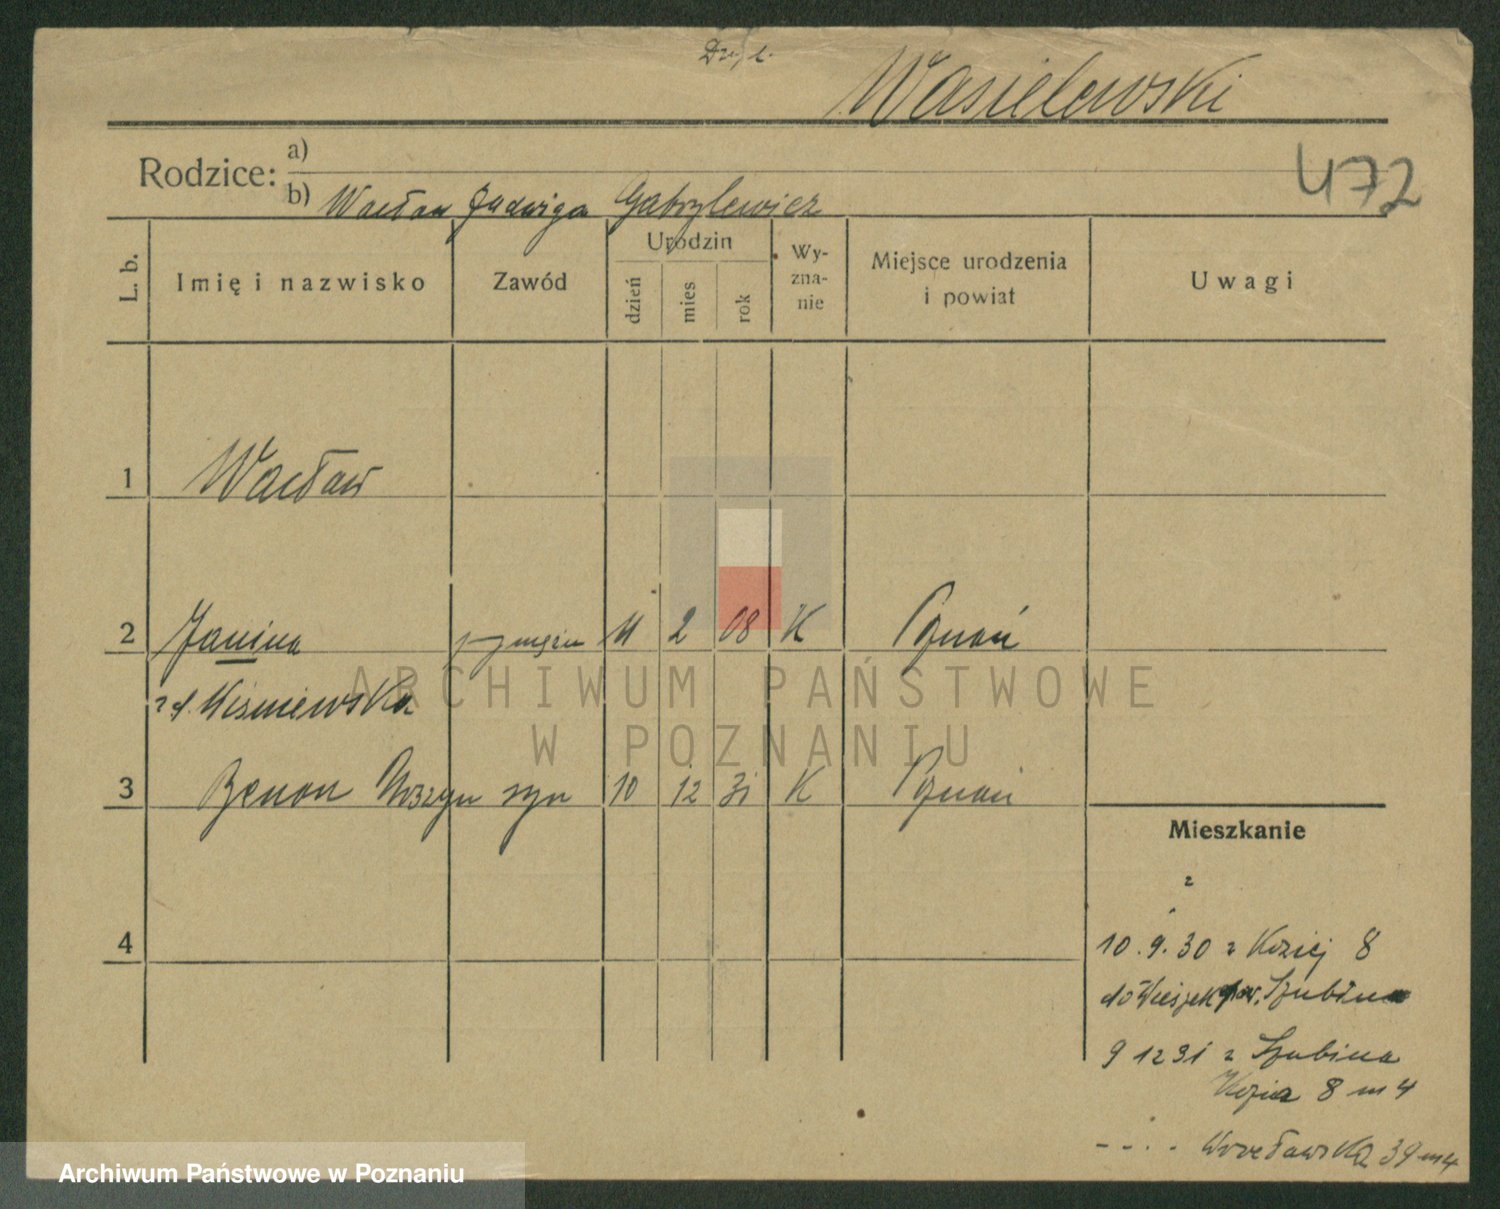 Wasielewski
472
Rodzice: a)
b) Wacław Jadwiga Gabrylewicz
L. b. Imię i nazwisko Zawód Urodzin dzień mies rok Wy-zna-nie Miejsce urodzenia i powiat Uwagi
1 Wacław
2 Janina 11 2 08 K Poznań
z d. Wiśniewska
3 Benon syn 10 12 31 K Poznań
4
Mieszkanie
z
10.9.30 z Koziej 8
do pow. Szubina
9 12 31 z Szubina
Kozia 8 m 4
- - . . Wrocławska 39 m 4
ARCHIWUM PAŃSTWOWE
W POZNANIU
Archiwum Państwowe w Poznaniu